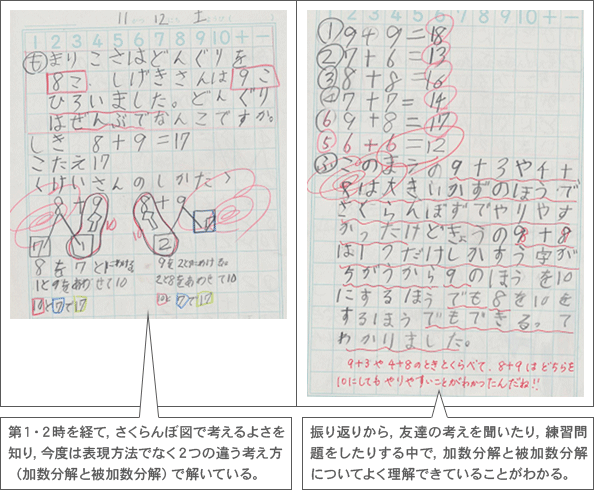 11 12 土
1 2 3 4 5 6 7 8 9 10 + −
も まりこさはどんぐりを
8こ、しげきさんは9こ
ひろいました。どんぐり
はぜんぶでなんこですか。
しき 8+9=17
こたえ17
〈けいさんのしかた〉
8+9
7 1
10
8+9
2 7
10
8を7と1にわける
1と9をあわせて10
10と7で17
9を2と7にわける。
2と8をあわせて10
10と7で17
① 9+9=18
② 7+6=13
③ 8+8=16
④ 7+7=14
⑥ 9+8=17
⑤ 6+6=12
ふ このまえの9+3や4+
8は大きいかずのほうで
さくらんぼずでやりやす
かったけどきょうの8+8
は1つだけしかすう字が
ちがうから9のほうを10
にするほうでも8を10に
するほうでもできる。って
わかりました。
9+3や4+8のときとくらべて、8+9はどちらを
10にしてもやりやすいことがわかったんだね!!
第1・2時を経て,さくらんぼ図で考えるよさを
知り,今度は表現方法でなく2つの違う考え方
(加数分解と被加数分解)で解いている。
振り返りから,友達の考えを聞いたり,練習問
題をしたりする中で,加数分解と被加数分解
についてよく理解できていることがわかる。